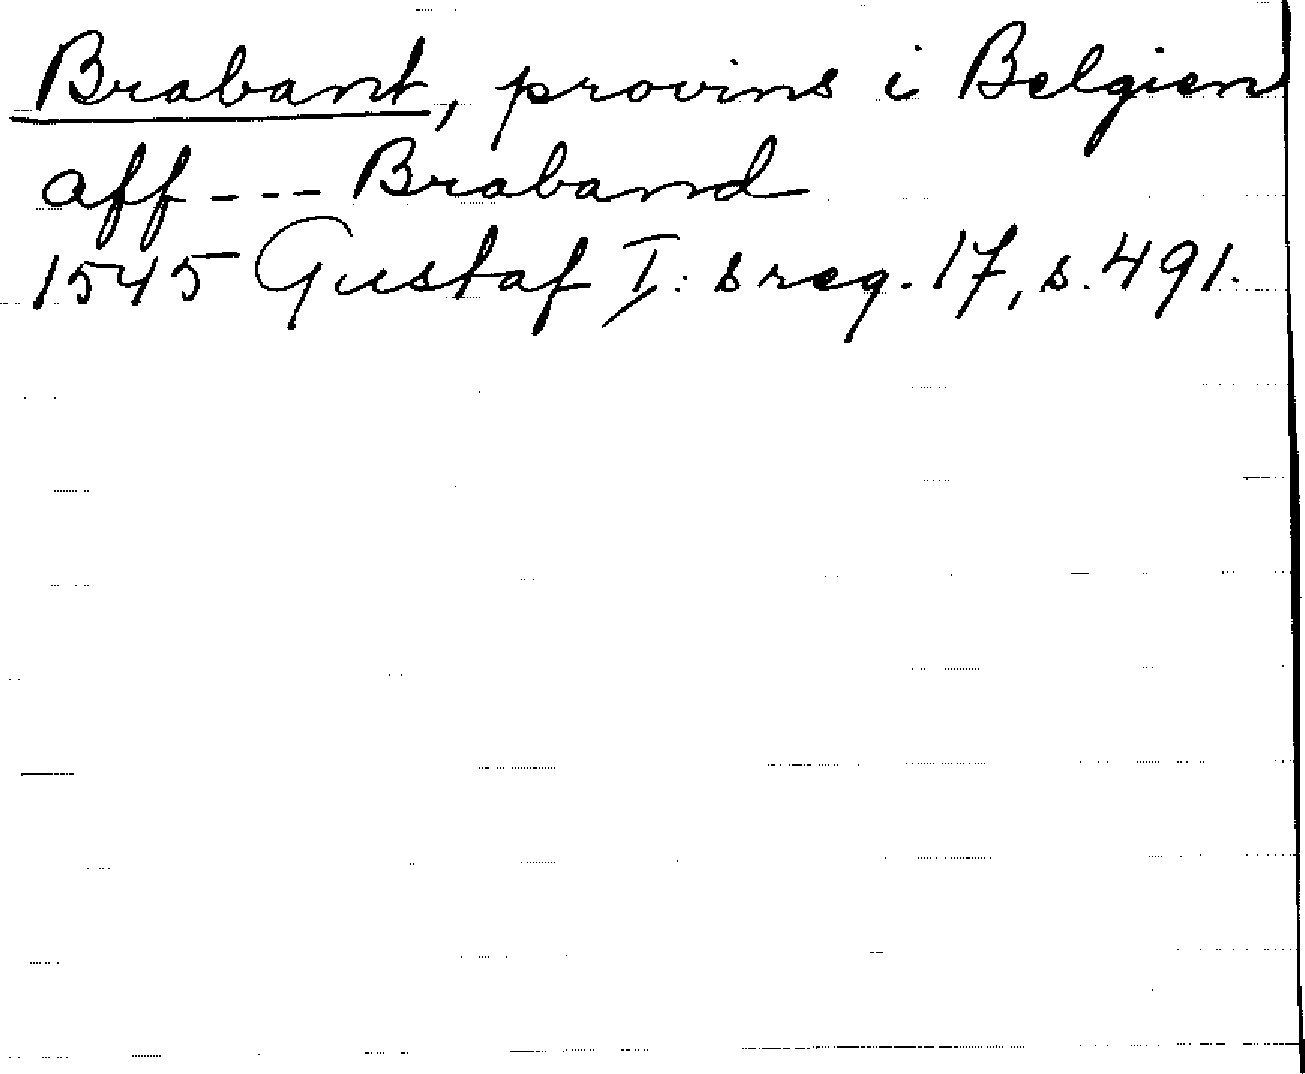 Brabant, provins i Belgien
aff --- Braband
1545 Gustaf I:s reg. 17, s. 491.